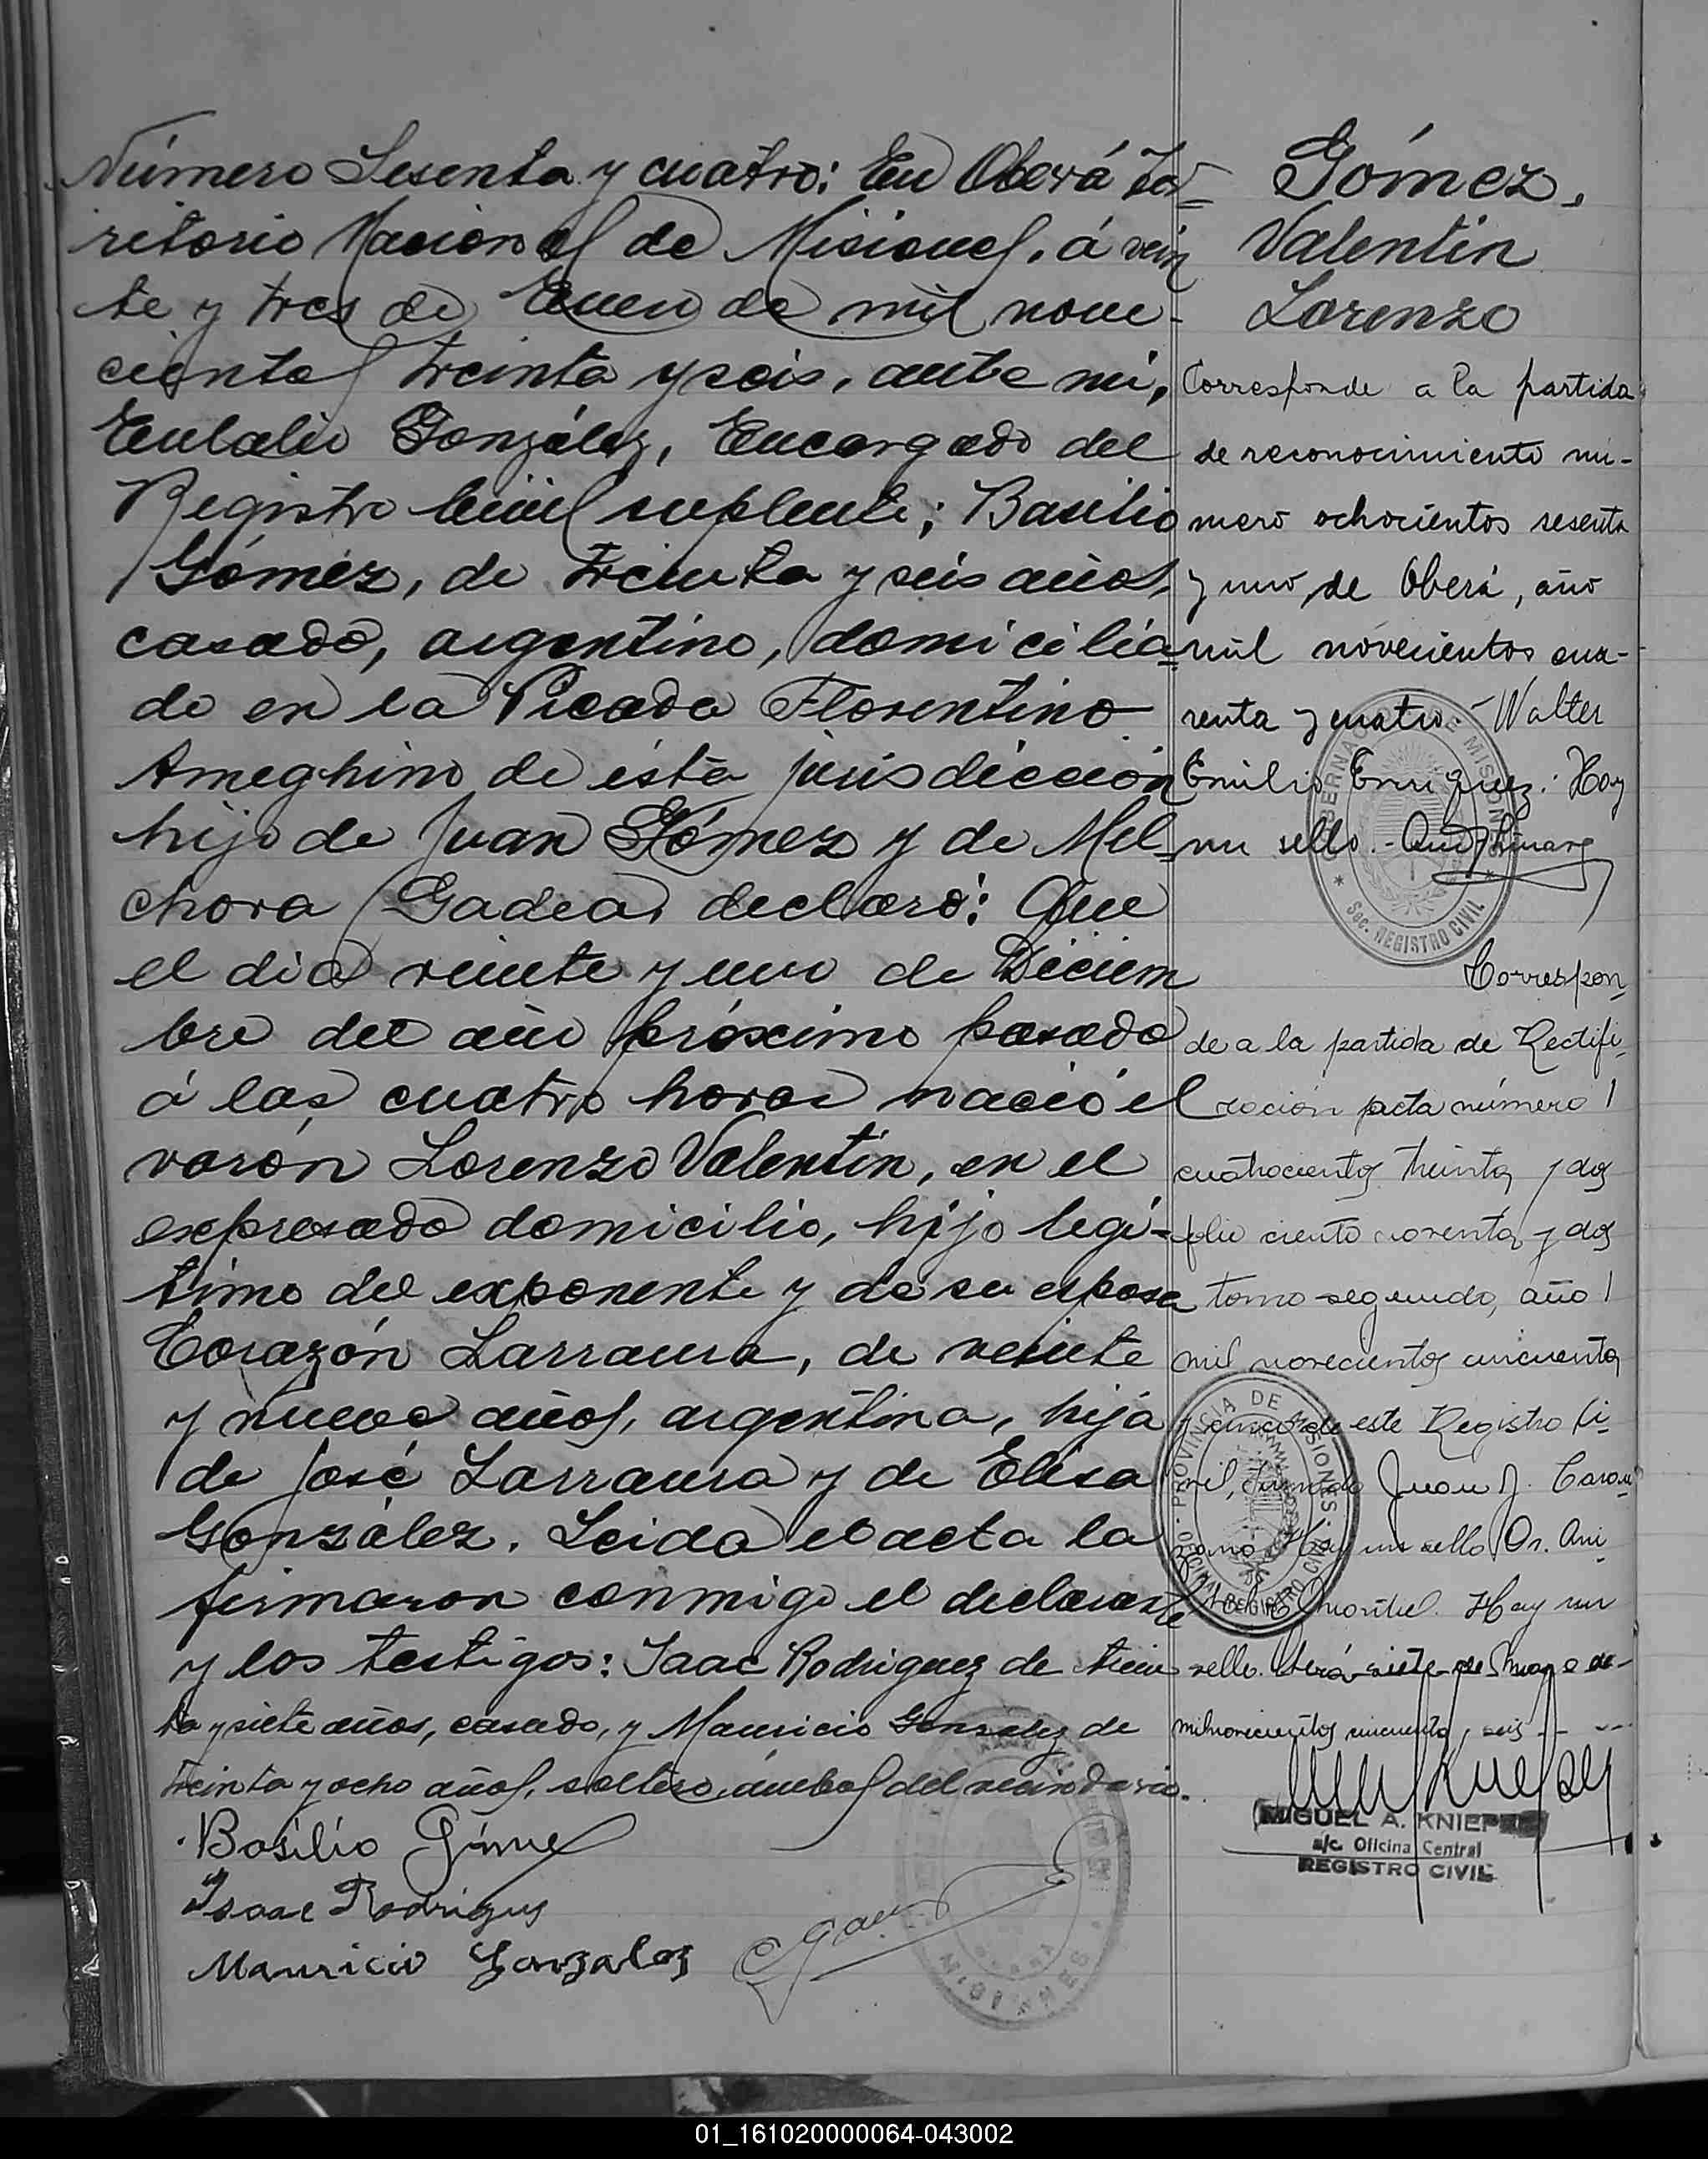 Número Sesenta y cuatro: En Oberá Te=
rritorio Nacional de Misiones, á vein
te y tres de Enero de mil nove-
cientos treinta y seis, ante mi,
Eulalio González, Encargado del
Registro Civil suplente; Basilio
Gómez, de treinta y seis años,
casado, argentino, domicilia=
do en la Picada Florentino
Ameghino de ésta jurisdicción
hijo de Juan Gómez y de Mel=
chora Gadea, declaró: Que
el dia veinte y uno de Diciem
bre del año próximo pasado
á las cuatro horas nació el
varón Lorenzo Valentín, en el
expresado domicilio, hijo legí-
timo del exponente y de su esposa
Corazón Larraura, de veinte
y nueve años, argentina, hija
de José Larraura y de Elisa
González. Leida el acta la
firmaron conmigo el declarante
y los testigos: Isaac Rodriguez de trein
ta y siete años, casado, y Mauricio Gonzalez de
treinta y ocho años, soltero, ámbos del vecindario.
Basilio Gómez
Isaac Rodrigues
Mauricio Gonzalez
MISIONES
Gómez,
Valentín
Lorenzo
Corresponde a la partida
de reconocimiento nú-
mero ochocientos sesenta
y uno, de Oberá, año
mil novecientos cua-
renta y cuatro.- Walter
Emilio Enriquez. Hay
un sello.-
GOBERNACION DE MISIONES
Sec. REGISTRO CIVIL
Correspon
de a la partida de Rectifi-
cación acta número
cuatrocientos treinta y dos
folio ciento noventa y dos
tomo segundo, año
mil novecientos cincuenta
y cinco de este Registro Ci-
vil, firmado Juan J.
Hay un sello
Hay un
sello. Oberá siete de Mayo de
mil novecientos cincuenta y seis
PROVINCIA DE MISIONES
OFICINA REGISTRO CIVIL
MIGUEL A. KNIEP
a/c. Oficina Central
REGISTRO CIVIL
01_161020000064-043002